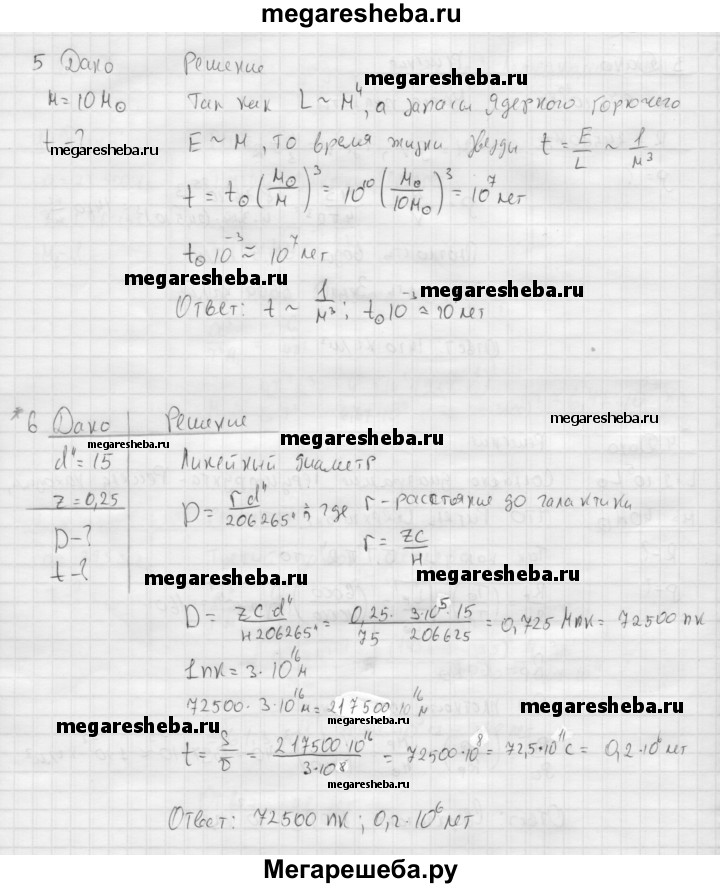 megaresheba.ru
5 Дано Решение
megaresheba.ru
M = 10 M⊙ Так как L ~ M⁴, а запасы ядерного горючего
t - ? E ~ M, то время жизни звезды t = E/L ~ 1/M³
megaresheba.ru
t = t⊙ (M⊙/M)³ = 10¹⁰ (M⊙/10M⊙)³ = 10⁷ лет
t⊙ 10⁻³ ≈ 10⁷ лет
megaresheba.ru megaresheba.ru
Ответ: t ~ 1/M³; t⊙ 10⁻³ ≈ 10 лет
*6 Дано Решение
megaresheba.ru
megaresheba.ru megaresheba.ru
d" = 15 Линейный диаметр
z = 0,25 D = r d"/206265", где r - расстояние до галактики
D - ? r = zc/H
t - ?
megaresheba.ru megaresheba.ru
D = zcd"/H206265" = 0,25 · 3·10⁵ · 15/75 206625 = 0,725 Мпк = 72500 пк
1 пк = 3 · 10¹⁶ м
72500 · 3 · 10¹⁶ м = 217500 · 10¹⁶ м
megaresheba.ru megaresheba.ru megaresheba.ru
t = S/v = 217500 · 10¹⁶/3·10⁸ = 72500 · 10⁸ = 72,5 · 10¹¹ с = 0,2 · 10⁶ лет
megaresheba.ru
Ответ: 72500 пк; 0,2 · 10⁶ лет
Мегарешеба.ру